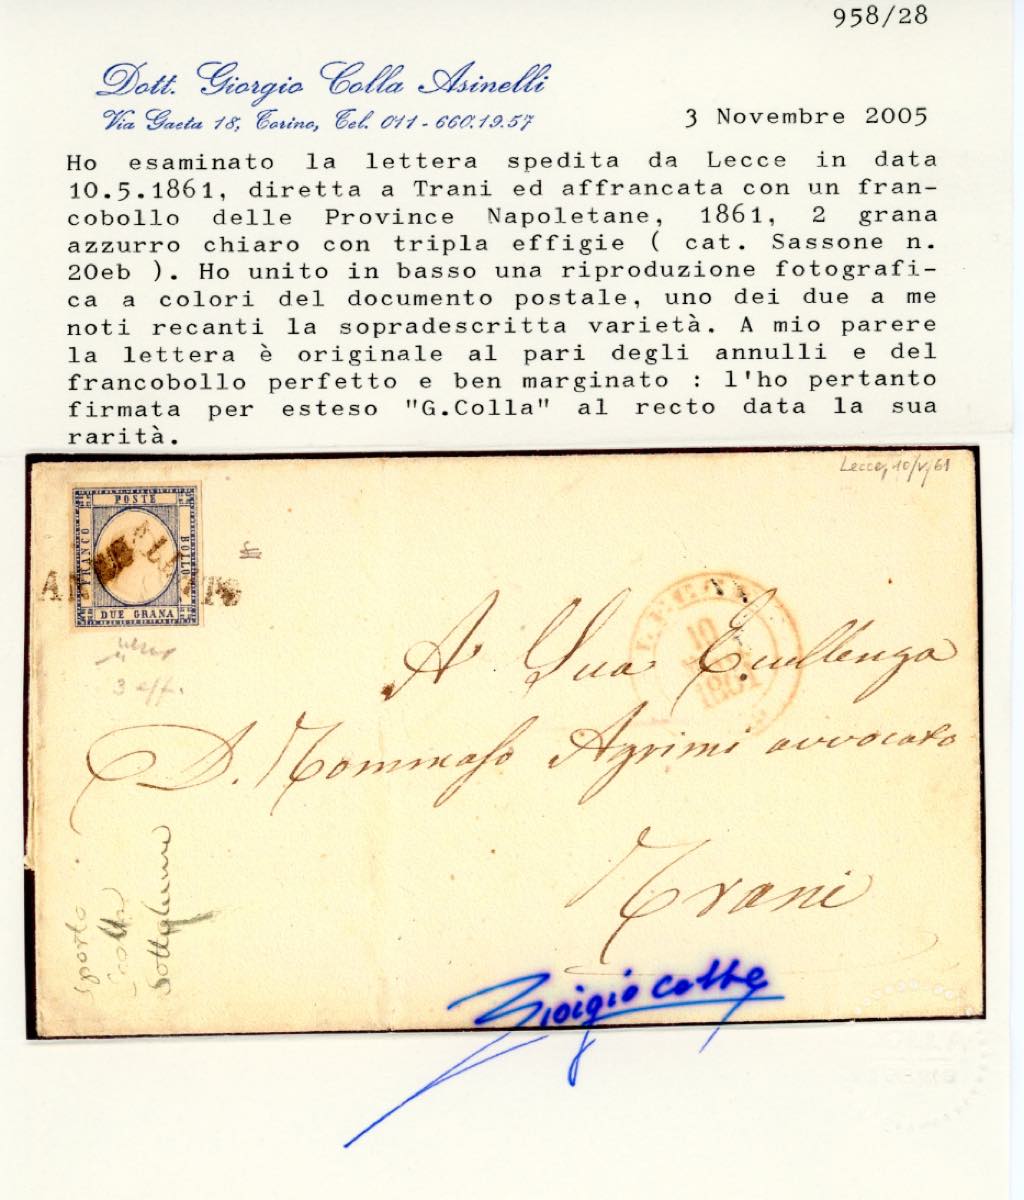 958/28
Dott. Giorgio Colla Asinelli
Via Gaeta 18, Torino, Tel. 011-660.19.57
3 Novembre 2005
Ho esaminato la lettera spedita da Lecce in data
10.5.1861, diretta a Trani ed affrancata con un fran-
cobollo delle Province Napoletane, 1861, 2 grana
azzurro chiaro con tripla effigie ( cat. Sassone n.
20eb ). Ho unito in basso una riproduzione fotografi-
ca a colori del documento postale, uno dei due a me
noti recanti la sopradescritta varietà. A mio parere
la lettera è originale al pari degli annulli e del
francobollo perfetto e ben marginato : l'ho pertanto
firmata per esteso "G.Colla" al recto data la sua
rarità.
Lecce, 10/V/61
POSTE
FRANCO
BOLLO
DUE GRANA
LECCE
10
1861
3 eff.
A Sua Eccellenza
D. Tommaso Agrimi avvocato
Trani
Giorgio Colla